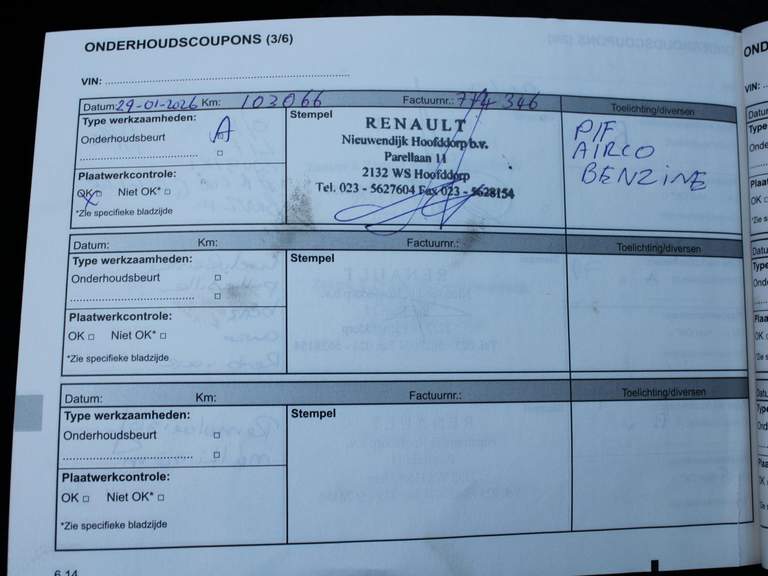 ONDERHOUDSCOUPONS (3/6)
VIN:
Datum: 29-01-2026 Km: 103066 Factuurnr.: 774346 Toelichting/diversen
Type werkzaamheden: A
Onderhoudsbeurt
Plaatwerkcontrole:
OK Niet OK*
*Zie specifieke bladzijde
Stempel
RENAULT
Nieuwendijk Hoofddorp b.v.
Parellaan 11
2132 WS Hoofddorp
Tel. 023 - 5627604 Fax 023 - 5628154
P/F
AIRCO
BENZINE
Datum: Km: Factuurnr.: Toelichting/diversen
Type werkzaamheden:
Onderhoudsbeurt
Plaatwerkcontrole:
OK Niet OK*
*Zie specifieke bladzijde
Stempel
Datum: Km: Factuurnr.: Toelichting/diversen
Type werkzaamheden:
Onderhoudsbeurt
Plaatwerkcontrole:
OK Niet OK*
*Zie specifieke bladzijde
Stempel
6.14